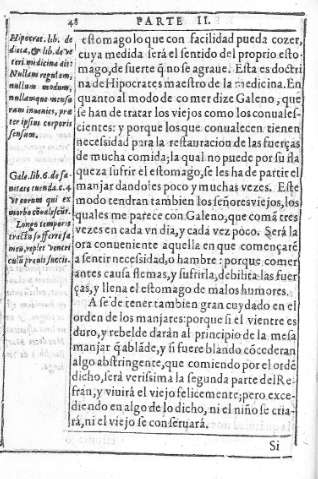 48 PARTE II.
Hipocrat. lib. de
diæta, & lib. de ve
teri medicina ait:
Nullam regulam,
nullum modum,
nullamque mensu
ram invenies, præ
ter ipsius corporis
sensum.
Gale. lib. 6. de sa
nitate tuenda. c. 4
Longo tempore
estomago lo que con facilidad pueda cozer,
cuya medida será el sentido del proprio esto-
mago, de suerte q̃ no se agraue. Esta es doctri
na de Hipocrates maestro de la medicina. En
quanto al modo de comer dize Galeno, que
se han de tratar los viejos como los conuales-
cientes: y porque los que conualecen tienen
necessidad para la restauracion de las fuerças
de mucha comida; la qual no puede por su fla
queza sufrir el estomago, se les ha de partir el
manjar dandoles poco y muchas vezes. Este
modo tendran tambien los señores viejos, los
quales me parece con Galeno, que comã tres
vezes en cada vn dia, y cada vez poco. Será la
ora conueniente aquella en que començarẽ
a sentir necessidad, o hambre: porque comer
antes causa flemas, y sufrirla, debilita las fuer
ças, y llena el estomago de malos humores.
A se de tener tambien gran cuydado en el
orden de los manjares: porque si el vientre es
duro, y rebelde darán al principio de la mesa
manjar q̃ ablãde, y si fuere blando cõcederan
algo abstringente, que comiendo por el ordẽ
dicho, será verissima la segunda parte del Re-
frán, y viuirá el viejo felicemente; pero exce-
diendo en algo de lo dicho, ni el niño se cria
rá, ni el viejo se conseruará.
Si